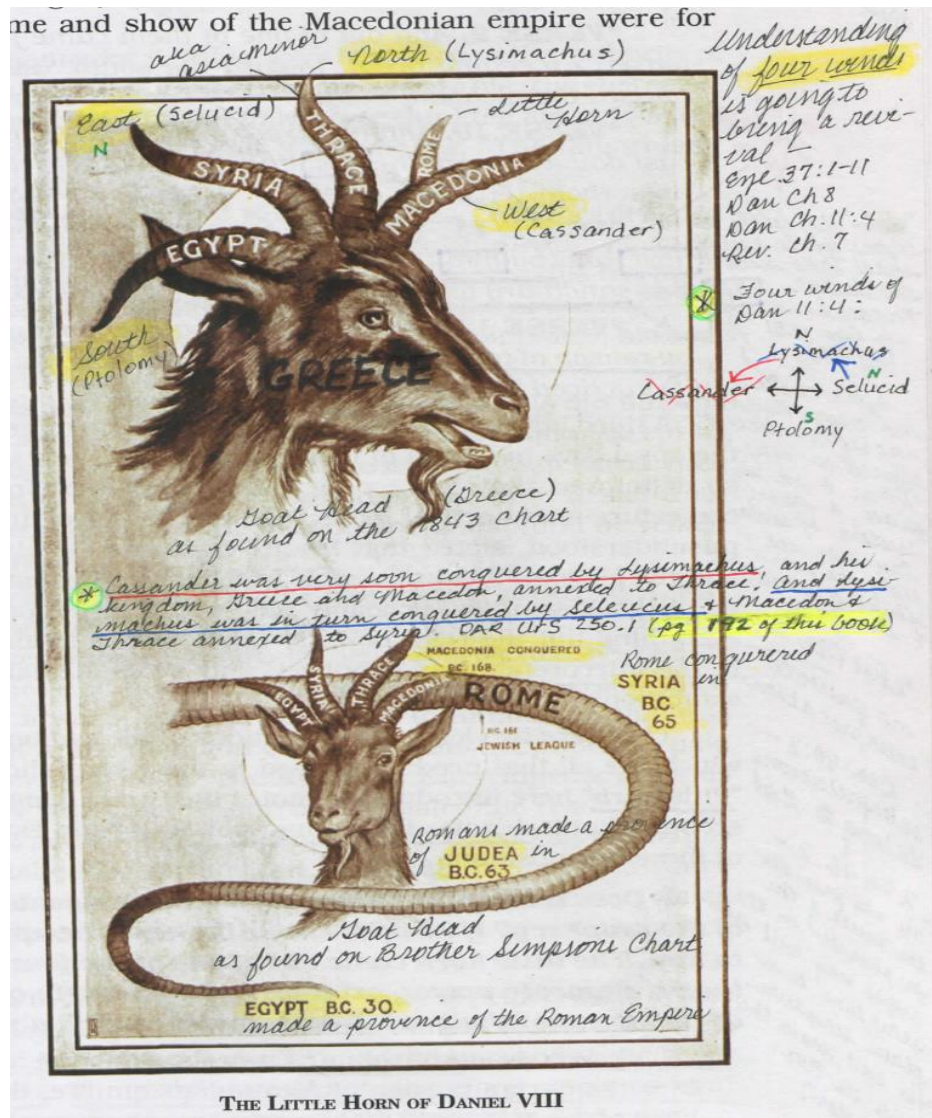 me and show of the Macedonian empire were for
aka
asia minor
North (Lysimachus)
East (Selucid)
N
Little
Horn
THRACE
ROME
SYRIA
MACEDONIA
EGYPT
West
(Cassander)
South
(Ptolomy)
GREECE
Goat Head (Greece)
as found on the 1843 chart
Understanding
of four winds
is going to
bring a revi-
val -
Eze 37:1-11
Dan Ch 8
Dan Ch. 11:4
Rev. Ch. 7
* Four winds of
Dan 11:4:
N
Lysimachus
N
Cassander Selucid
S
Ptolomy
* Cassander was very soon conquered by Lysimachus, and his
kingdom, Greece and Macedon, annexed to Thrace, and Lysi-
machus was in turn conquered by Seleucus & Macedon &
Thrace annexed to Syria. DAR US 250.1 (pg 192 of this book)
MACEDONIA CONQUERED
B.C. 168.
Rome conqurered
in
SYRIA
B.C.
65
EGYPT
SYRIA
THRACE
MACEDONIA
ROME
B.C. 161
JEWISH LEAGUE
Romans made a provence
of JUDEA in
B.C. 63
Goat Head
as found on Brother Simpsons Chart
EGYPT B.C. 30.
made a provence of the Roman Empire
THE LITTLE HORN OF DANIEL VIII